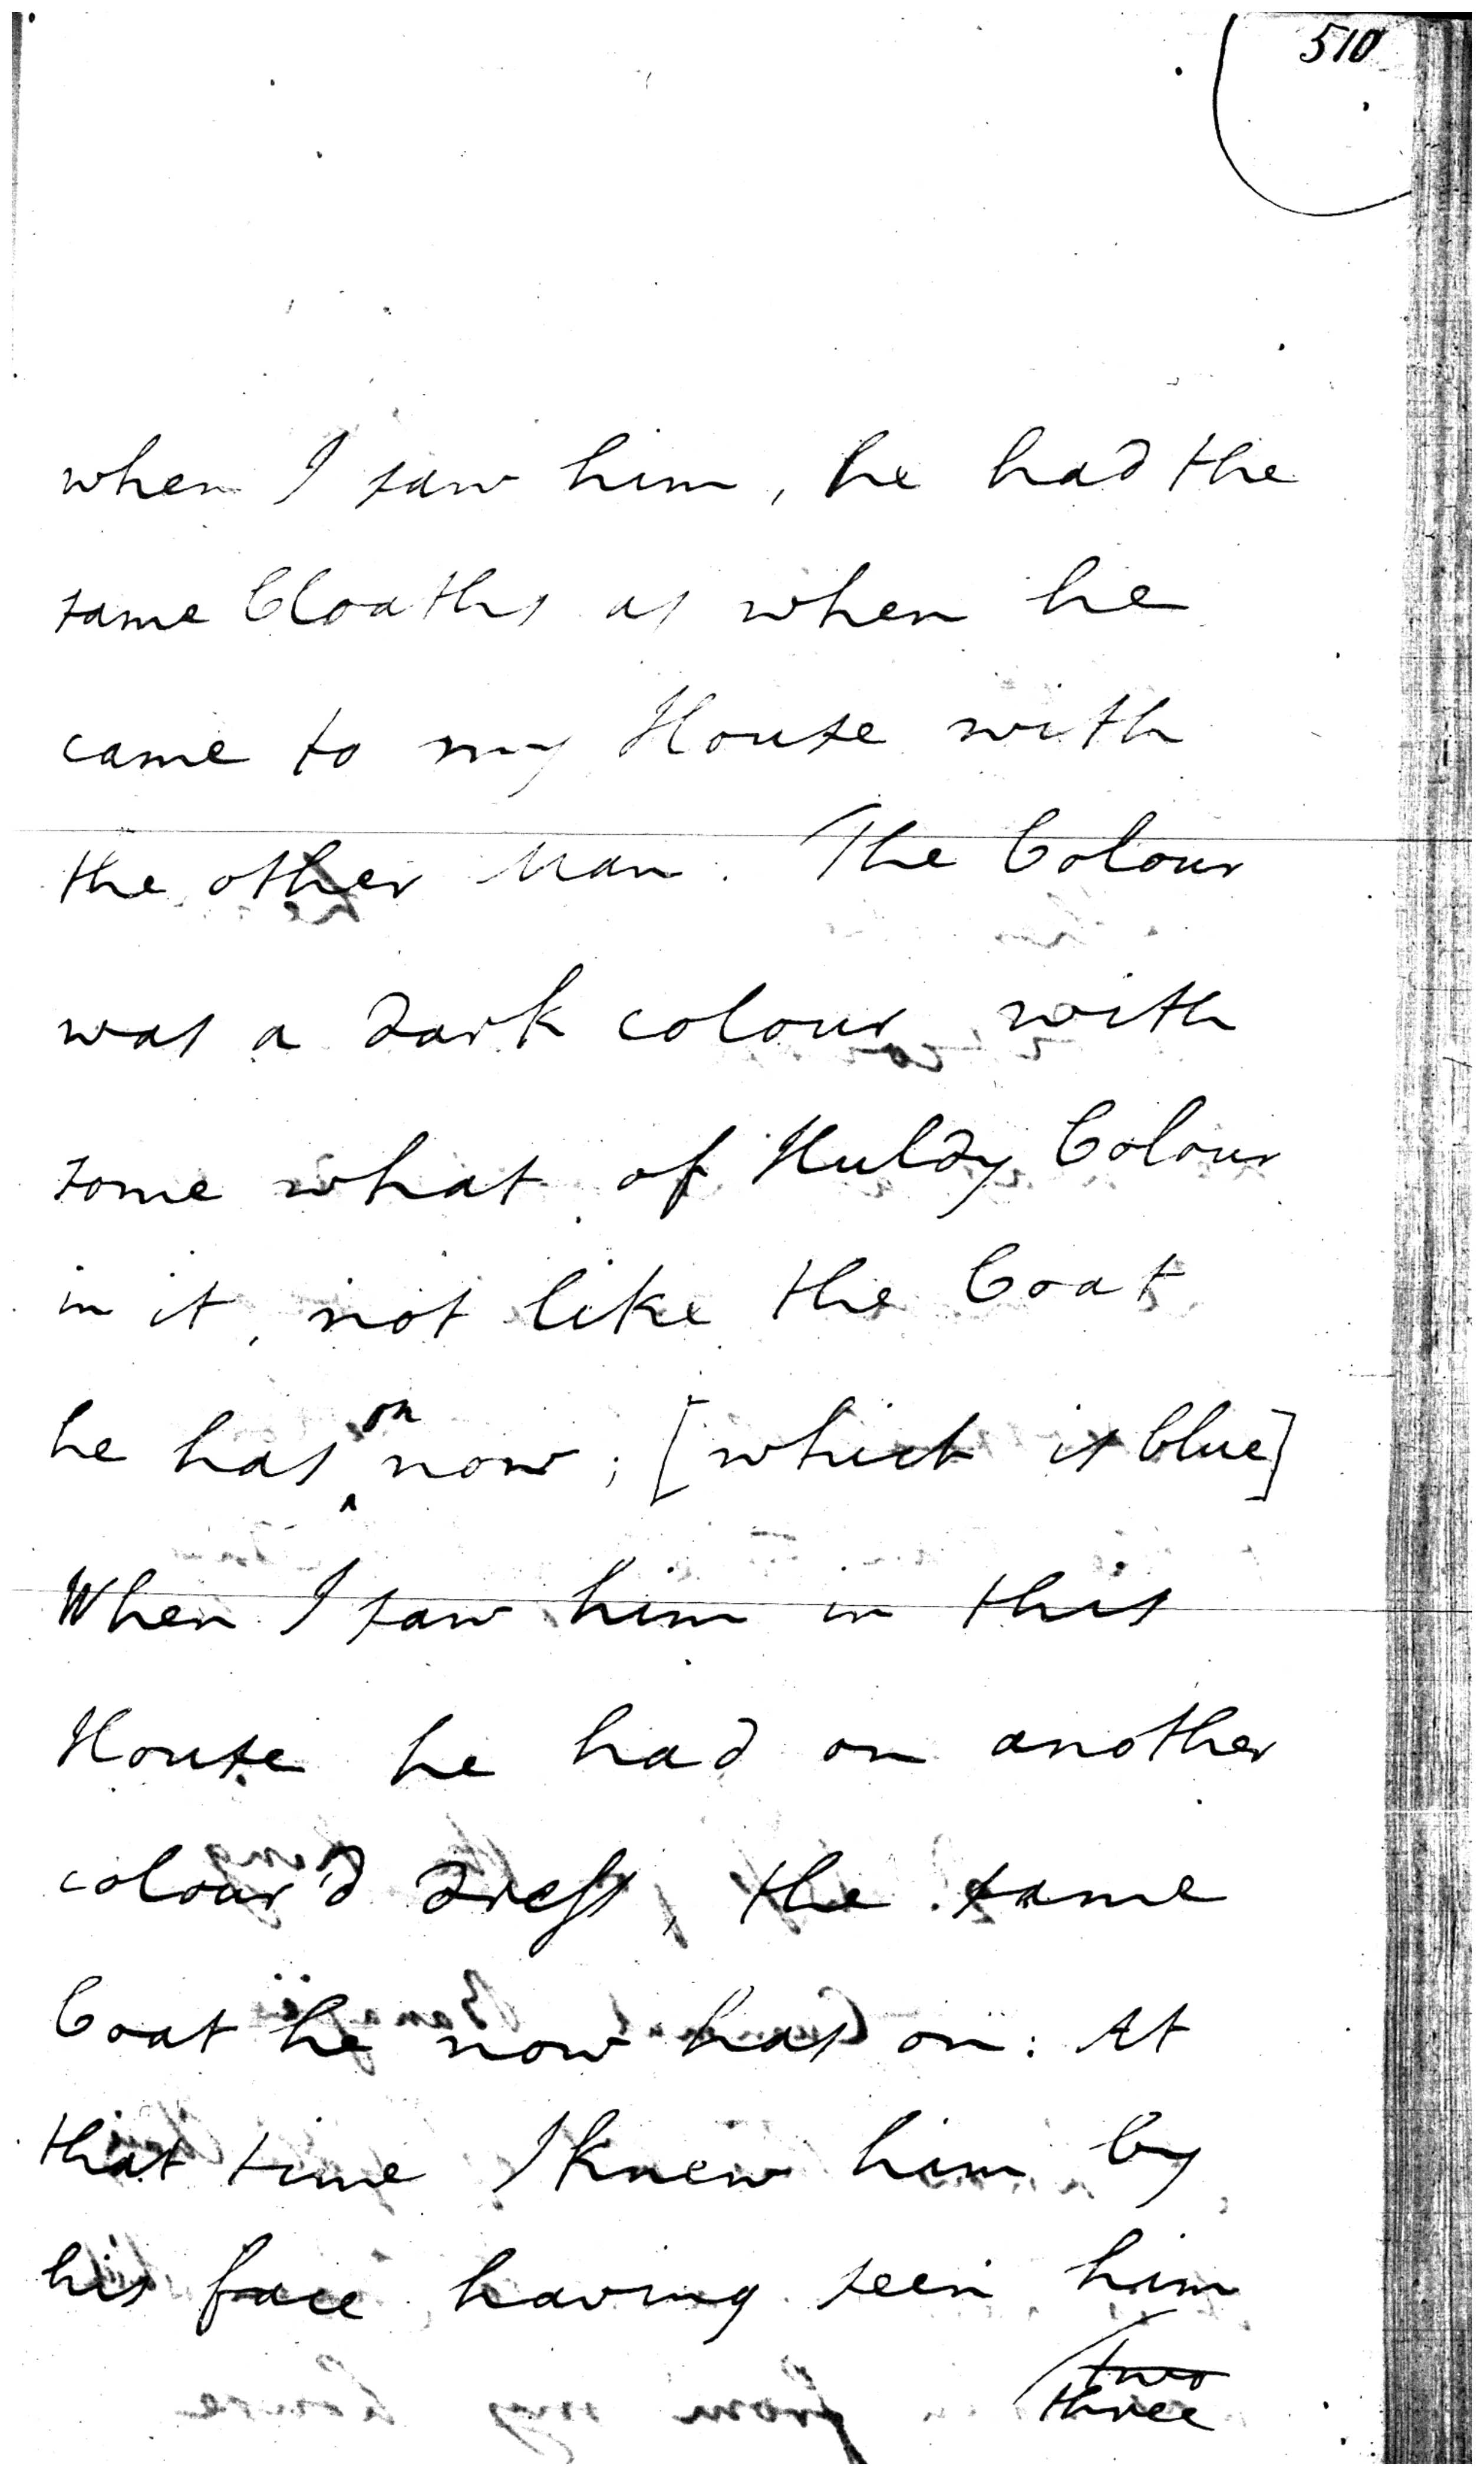 510
when I saw him, he had the
same Cloaths as when he
came to my House with
the other Man. The Colour
was a dark colour, with
some what of Huldy Colour
in it, not like the Coat
he has on now; [which is blue]
When I saw him in this
House he had on another
colour'd dress, the same
Coat he now has on: At
that time I knew him by
his face having seen him
two
three